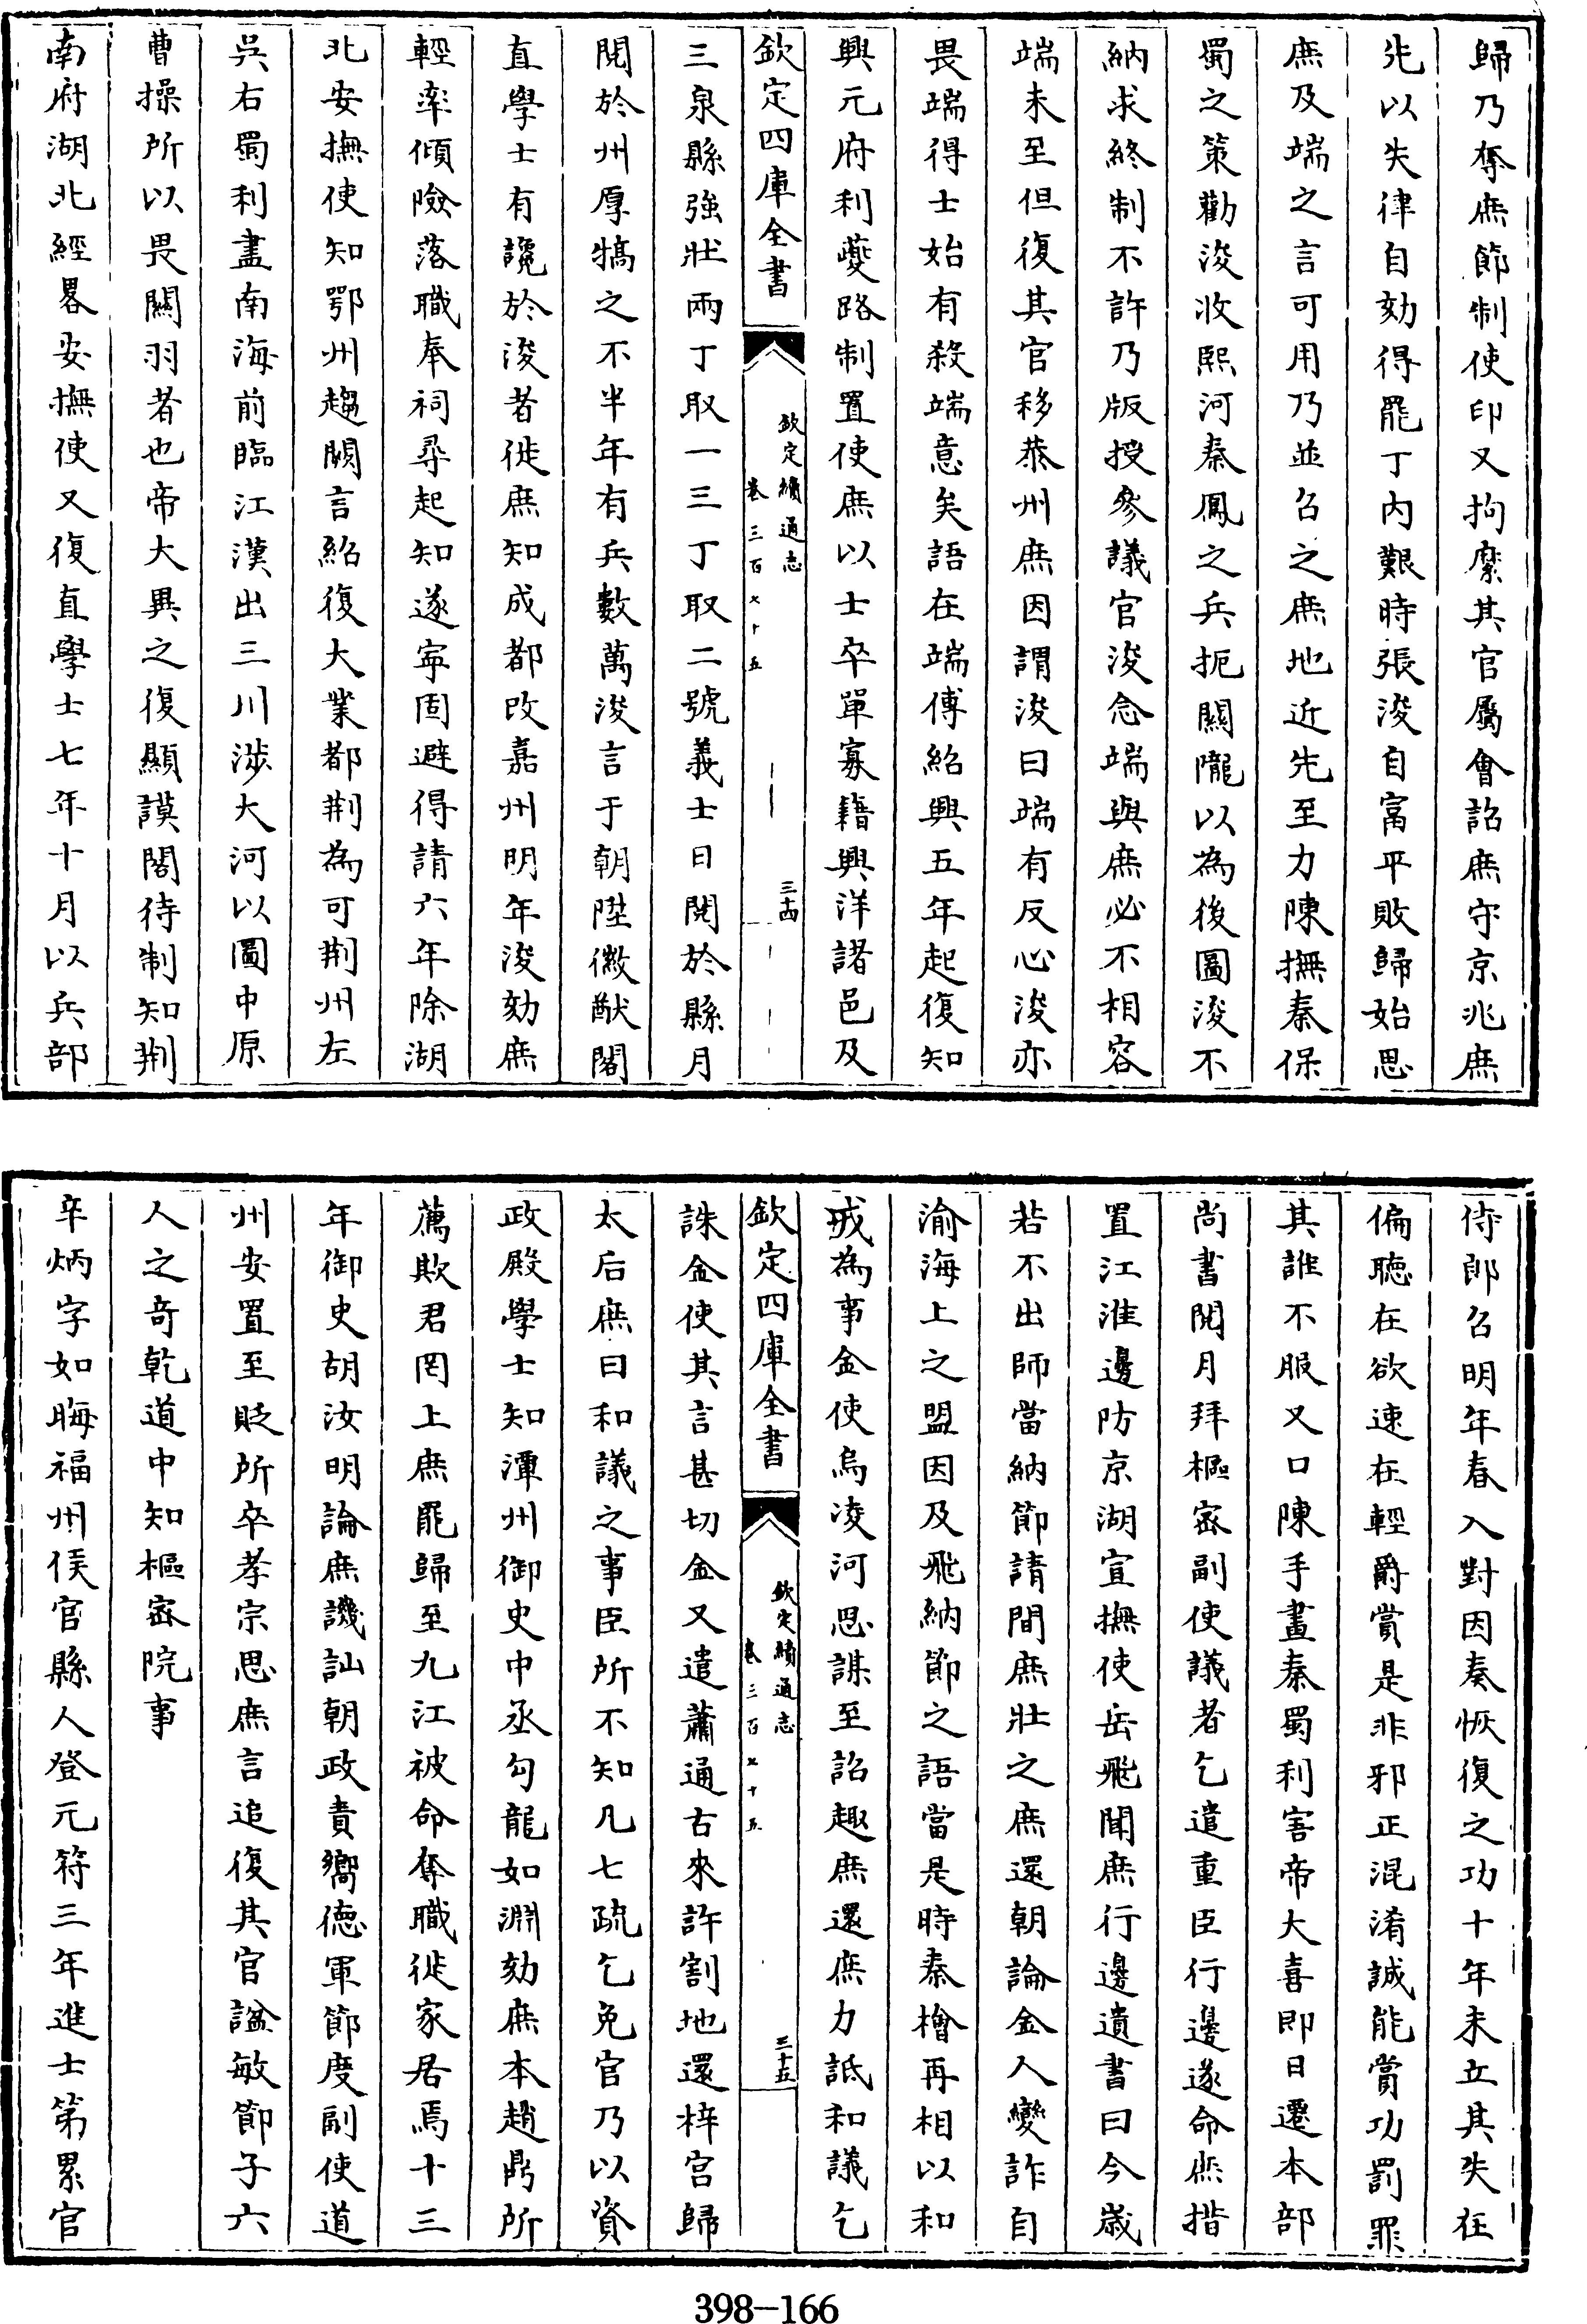 歸乃奪庶節制使印又拘縻其官屬會詔庶守京兆庶
先以失律自劾得罷丁内艱時張浚自富平敗歸始思
庶及端之言可用乃並召之庶地近先至力陳撫秦保
蜀之策勸浚收熙河秦鳳之兵扼關隴以為後圖浚不
納求終制不許乃版授參議官浚念端與庶必不相容
端未至但復其官移恭州庶因謂浚曰端有反心浚亦
畏端得士始有殺端意矣語在端傳紹興五年起復知
興元府利夔路制置使庶以士卒單寡籍興洋諸邑及
欽定四庫全書
欽定續通志
卷三百七十五
三十四
三泉縣強壯兩丁取一三丁取二號義士日閱於縣月
閱於州厚犒之不半年有兵數萬浚言于朝陞徽猷閣
直學士有讒於浚者徙庶知成都改嘉州明年浚劾庶
輕率傾險落職奉祠尋起知遂寧固避得請六年除湖
北安撫使知鄂州趨闕言紹復大業都荆為可荆州左
吳右蜀利盡南海前臨江漢出三川涉大河以圖中原
曹操所以畏關羽者也帝大異之復顯謨閣待制知荆
南府湖北經畧安撫使又復直學士七年十月以兵部
侍郎召明年春入對因奏恢復之功十年未立其失在
偏聽在欲速在輕爵賞是非邪正混淆誠能賞功罰罪
其誰不服又口陳手畫秦蜀利害帝大喜即日遷本部
尚書閱月拜樞宻副使議者乞遣重臣行邊遂命庶措
置江淮邊防京湖宣撫使岳飛聞庶行邊遺書曰今歲
若不出師當納節請間庶壯之庶還朝論金人變詐自
渝海上之盟因及飛納節之語當是時秦檜再相以和
戎為事金使烏凌河思謀至詔趣庶還庶力詆和議乞
欽定四庫全書
欽定續通志
卷三百七十五
三十五
誅金使其言甚切金又遣蕭通古來許割地還梓宫歸
太后庶曰和議之事臣所不知凡七疏乞免官乃以資
政殿學士知潭州御史中丞勾龍如淵劾庶本趙鼎所
薦欺君罔上庶罷歸至九江被命奪職徙家居焉十三
年御史胡汝明論庶譏訕朝政責嚮徳軍節度副使道
州安置至貶所卒孝宗思庶言追復其官諡敏節子六
人之奇乾道中知樞宻院事
辛炳字如晦福州侯官縣人登元符三年進士第累官
398-166